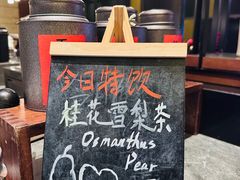 今日特饮
桂花雪梨茶
Osmanthus
Pear